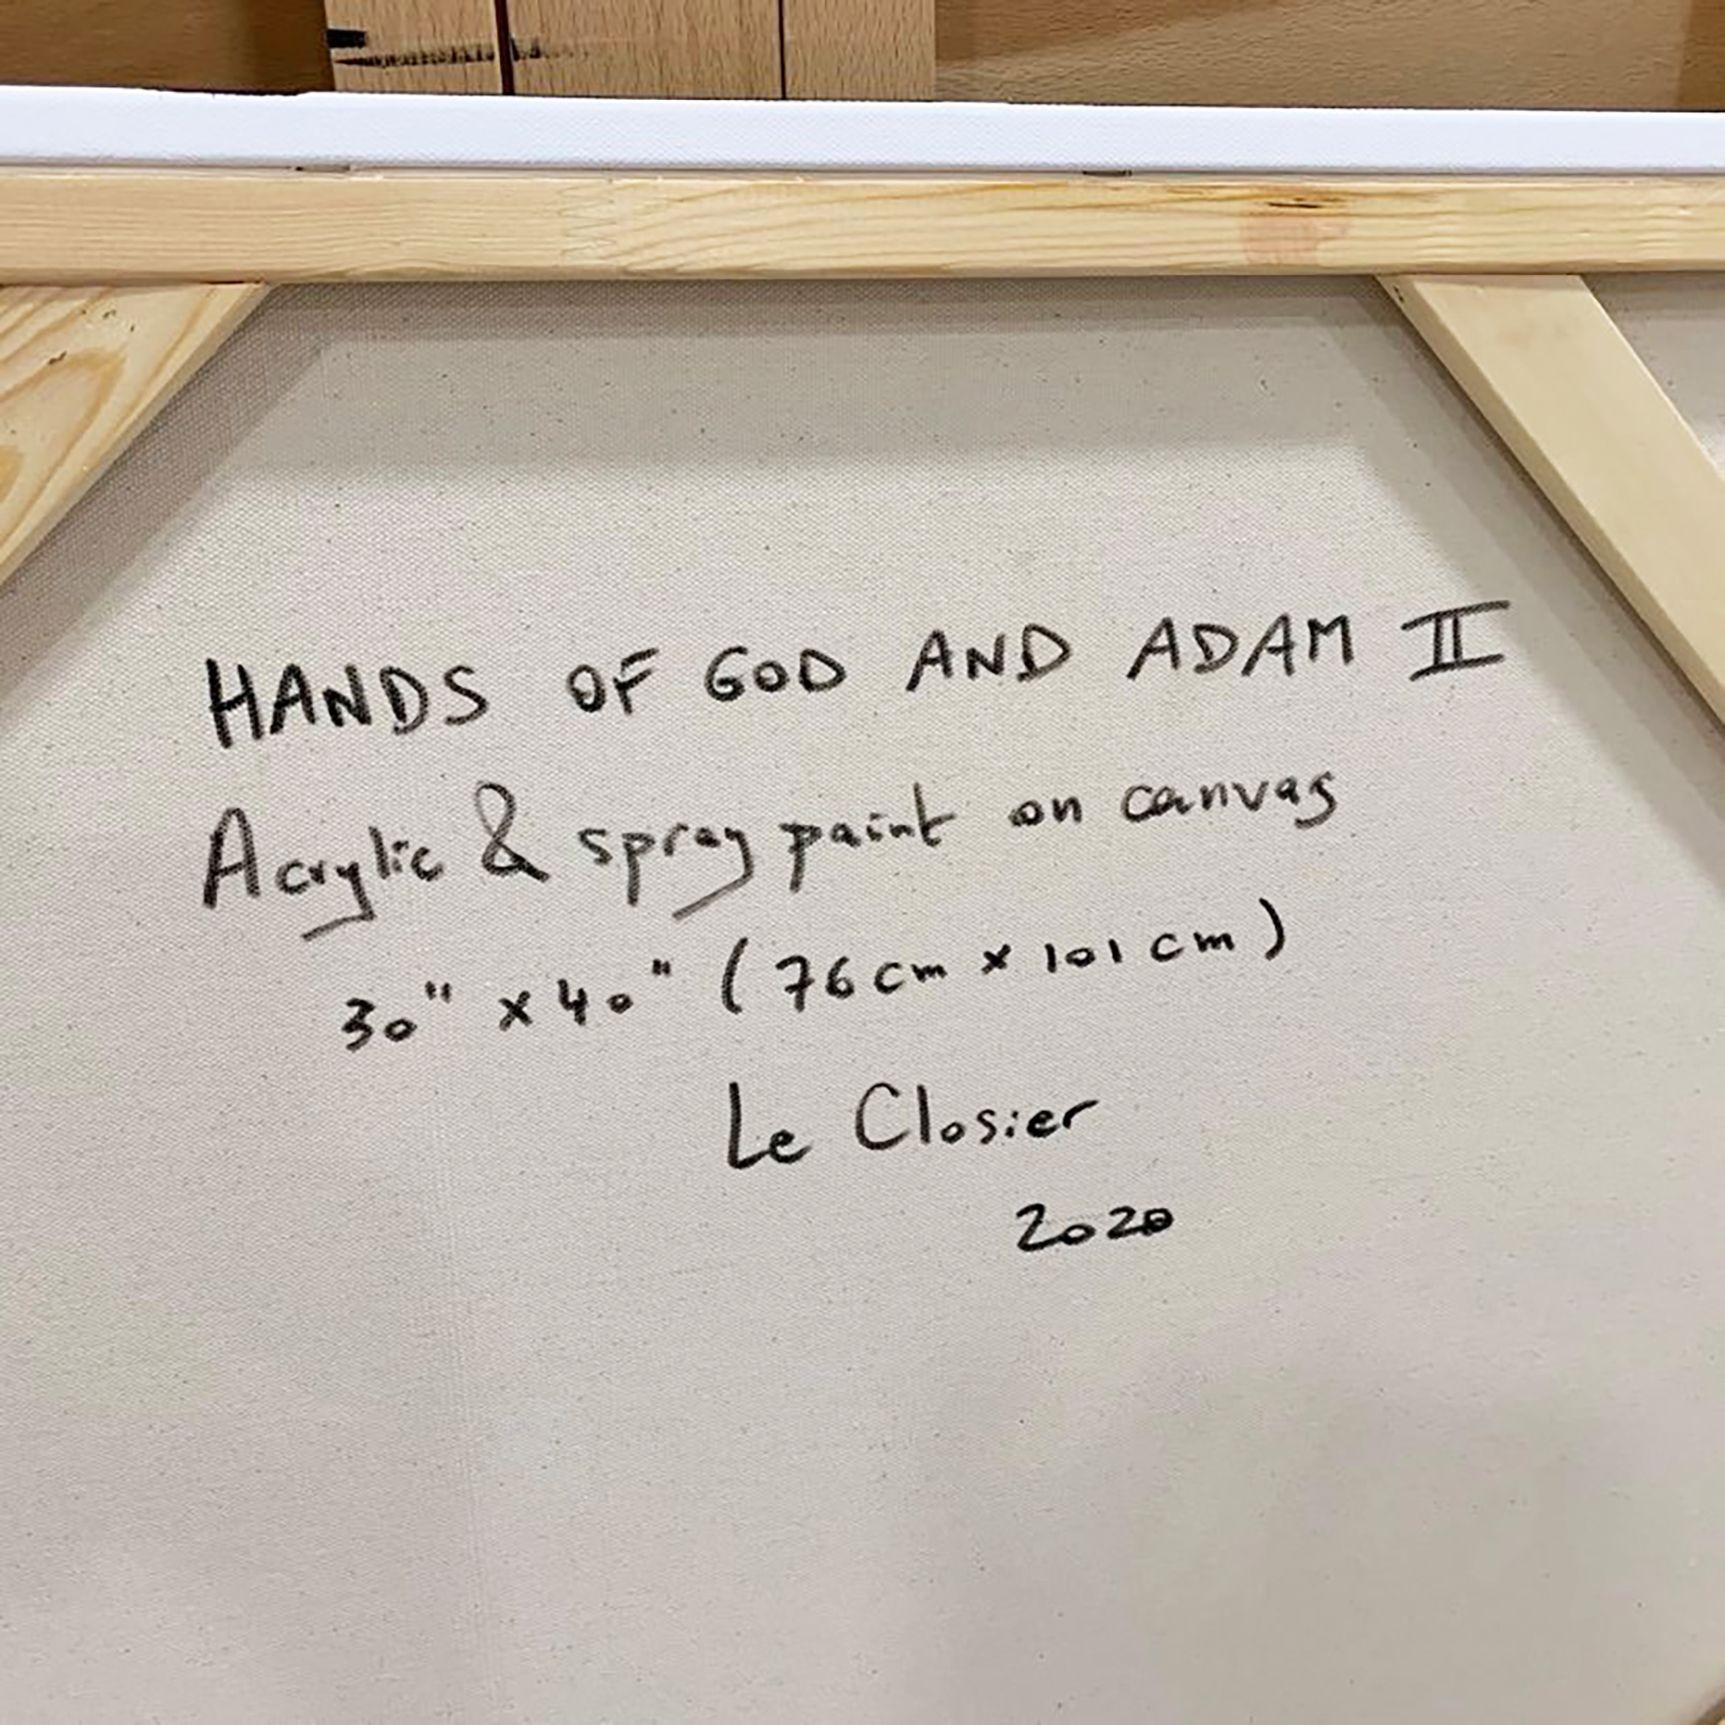 HANDS OF GOD AND ADAM II
Acrylic & spray paint on canvas
30" x 40" (76 cm x 101 cm)
Le Closier
2020